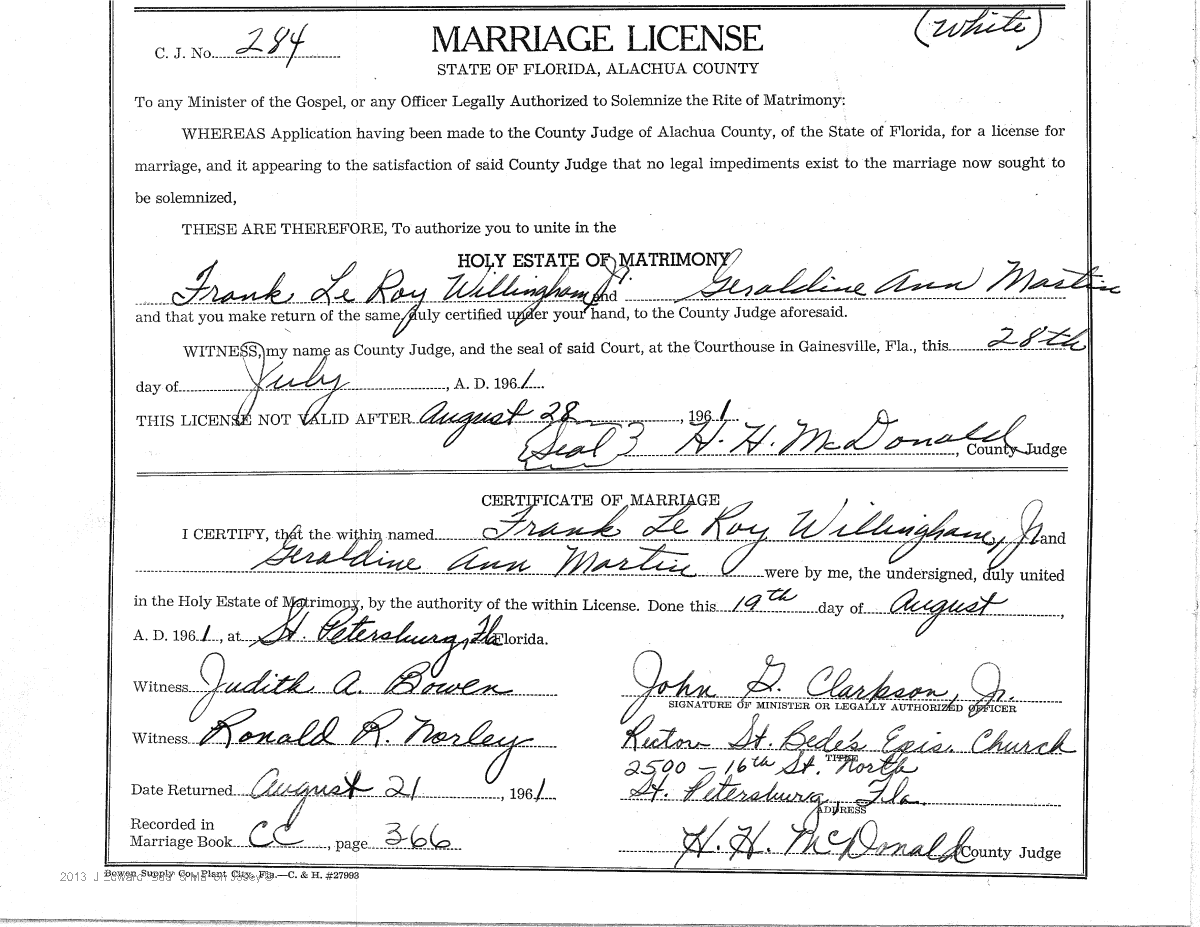 (White)
C. J. No. 284
MARRIAGE LICENSE
STATE OF FLORIDA, ALACHUA COUNTY
To any Minister of the Gospel, or any Officer Legally Authorized to Solemnize the Rite of Matrimony:
WHEREAS Application having been made to the County Judge of Alachua County, of the State of Florida, for a license for
marriage, and it appearing to the satisfaction of said County Judge that no legal impediments exist to the marriage now sought to
be solemnized,
THESE ARE THEREFORE, To authorize you to unite in the
HOLY ESTATE OF MATRIMONY
Frank Le Roy Willingham, Jr. and Geraldine Ann Martin
and that you make return of the same, duly certified under your hand, to the County Judge aforesaid.
WITNESS, my name as County Judge, and the seal of said Court, at the Courthouse in Gainesville, Fla., this 28th
day of July, A. D. 1961
THIS LICENSE NOT VALID AFTER August 28, 1961
Seal H. H. McDonald, County Judge
CERTIFICATE OF MARRIAGE
I CERTIFY, that the within named Frank Le Roy Willingham, Jr. and
Geraldine Ann Martin were by me, the undersigned, duly united
in the Holy Estate of Matrimony, by the authority of the within License. Done this 19th day of August,
A. D. 1961, at St. Petersburg, Fla Florida.
Witness Judith A. Bowen John G. Clarkson, Jr.
SIGNATURE OF MINISTER OR LEGALLY AUTHORIZED OFFICER
Witness Ronald R. Norley Rector St. Bede's Epis. Church
TITLE
2500 - 16th St. North
Date Returned August 21, 1961 St. Petersburg, Fla.
ADDRESS
Recorded in
Marriage Book CC, page 366 H. H. McDonald County Judge
Bowen Supply Co., Plant City, Fla.—C. & H. #27993
2013 J Edward